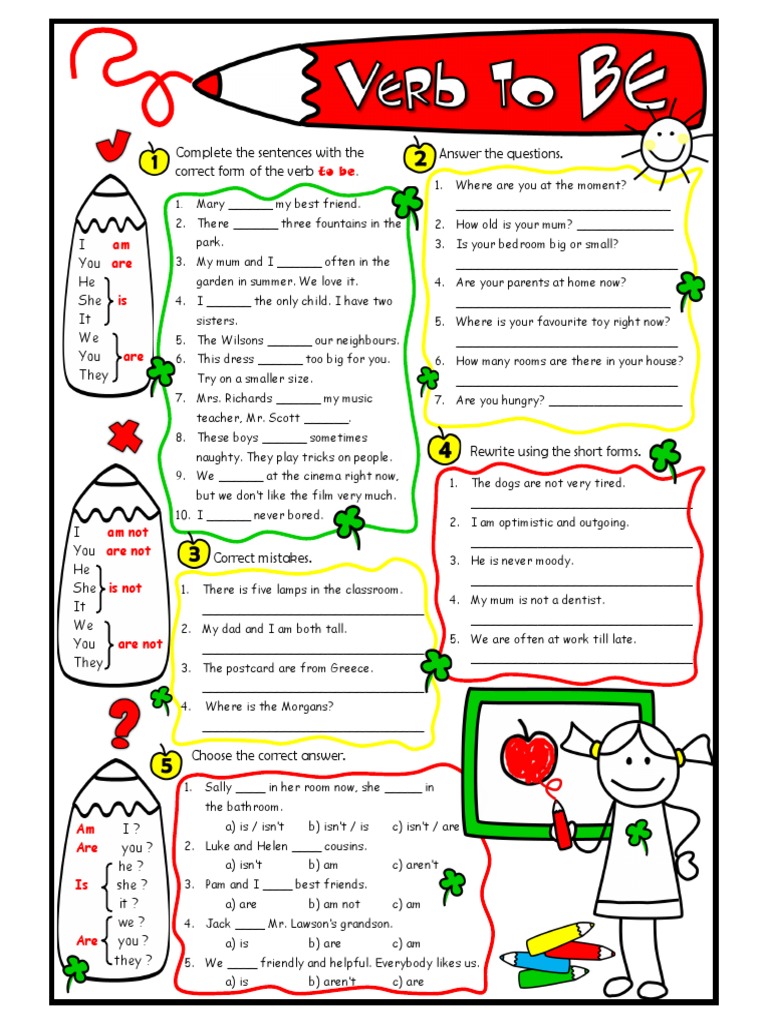 VERB TO BE
1 Complete the sentences with the
correct form of the verb to be.
I am
You are
He
She is
It
We
You are
They
1. Mary ______ my best friend.
2. There ______ three fountains in the
park.
3. My mum and I ______ often in the
garden in summer. We love it.
4. I ______ the only child. I have two
sisters.
5. The Wilsons ______ our neighbours.
6. This dress ______ too big for you.
Try on a smaller size.
7. Mrs. Richards ______ my music
teacher, Mr. Scott ______.
8. These boys ______ sometimes
naughty. They play tricks on people.
9. We ______ at the cinema right now,
but we don't like the film very much.
10. I ______ never bored.
2 Answer the questions.
1. Where are you at the moment?
______________________________
2. How old is your mum? ______________
3. Is your bedroom big or small?
______________________________
4. Are your parents at home now?
______________________________
5. Where is your favourite toy right now?
______________________________
6. How many rooms are there in your house?
______________________________
7. Are you hungry? ___________________
I am not
You are not
He
She is not
It
We
You are not
They
3 Correct mistakes.
1. There is five lamps in the classroom.
______________________________
2. My dad and I am both tall.
______________________________
3. The postcard are from Greece.
______________________________
4. Where is the Morgans?
______________________________
4 Rewrite using the short forms.
1. The dogs are not very tired.
______________________________
2. I am optimistic and outgoing.
______________________________
3. He is never moody.
______________________________
4. My mum is not a dentist.
______________________________
5. We are often at work till late.
______________________________
?
Am I ?
Are you ?
he ?
Is she ?
it ?
we ?
Are you ?
they ?
5 Choose the correct answer.
1. Sally ____ in her room now, she _____ in
the bathroom.
a) is / isn't b) isn't / is c) isn't / are
2. Luke and Helen ____ cousins.
a) isn't b) am c) aren't
3. Pam and I ____ best friends.
a) are b) am not c) am
4. Jack ____ Mr. Lawson's grandson.
a) is b) are c) am
5. We ____ friendly and helpful. Everybody likes us.
a) is b) aren't c) are